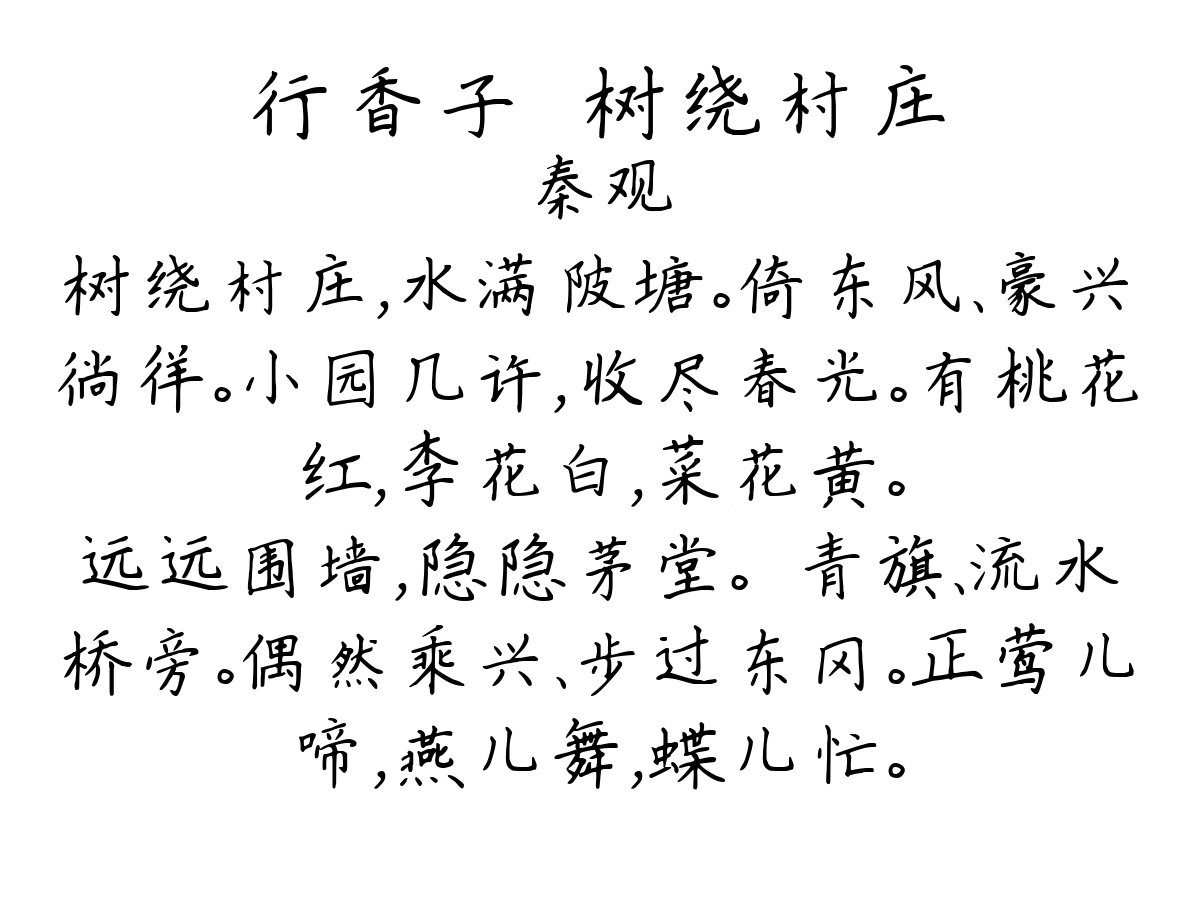 行香子 树绕村庄
秦观
树绕村庄,水满陂塘。倚东风、豪兴
徜徉。小园几许,收尽春光。有桃花
红,李花白,菜花黄。
远远围墙,隐隐茅堂。 青旗、流水
桥旁。偶然乘兴、步过东冈。正莺儿
啼,燕儿舞,蝶儿忙。